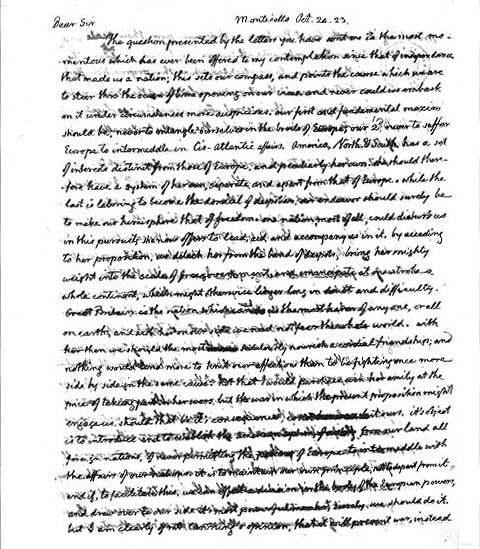 Dear Sir Monticello Oct. 24. 23.
The question presented by the letters you have sent me is the most mo-
mentous which has ever been offered to my contemplation since that of independance
that made us a nation; this sets our compass, and points the course which we are
to steer thro' the ocean of time opening on our view. and never could we embark
on it under circumstances more auspicious. our first and fundamental maxim
should be, never to entangle ourselves in the broils of Europe; our 2d. never to suffer
Europe to intermeddle in Cis-Atlantic affairs. America, North & South has a set
of interests distinct from those of Europe, and peculiarly her own. she should there-
fore have a system of her own, separate and apart from that of Europe. while the
last is laboring to become the domicil of despotism, our endeavor should surely be
to make our hemisphere that of freedom. one nation, most of all, could disturb us
in this pursuit; she now offers to lead, aid, and accompany us in it. by acceding
to her proposition, we detach her from the band of despots, bring her mighty
weight into the scale of free government, and emancipate at one stroke a
whole continent, which might otherwise linger long in doubt and difficulty.
Great Britain is the nation which can do us the most harm of any one, or all
on earth; and with her on our side we need not fear the whole world. with
her then we should the most sedulously nourish a cordial friendship; and
nothing would tend more to knit our affections than to be fighting once more
side by side in the same cause. not that I would purchase even her amity at the
price of taking part in her wars. but the war in which the present proposition might
engage us, should that be it's consequence, is not her war, but ours. it's object
is to introduce and to establish the American system of from our land all
foreign nations, of never permitting the of Europe to intermeddle with
the affairs of our nations. it is to maintain our own principle, not to depart from it.
and if, to facilitate this, we can effect a division in the body of the European powers,
and draw over to our side it's most powerful member, surely we should do it.
but I am clearly of mr Canning's opinion, that it will prevent war, instead